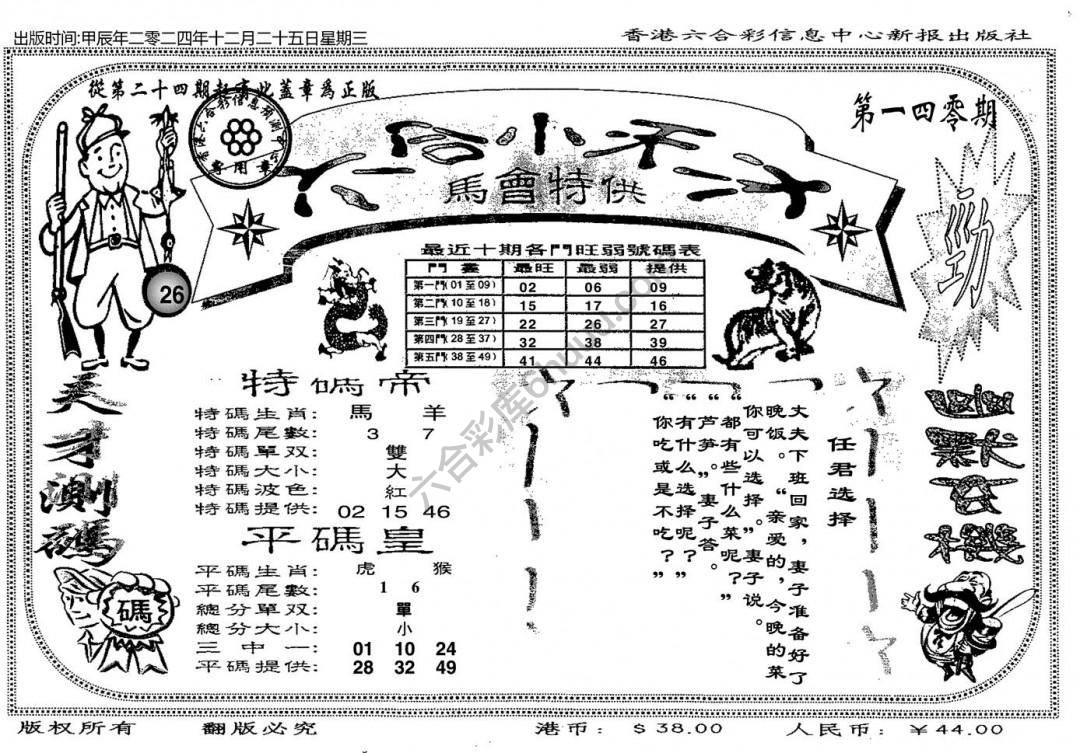 出版时间:甲辰年二零二四年十二月二十五日星期三
香港六合彩信息中心新报出版社
從第二十四期起有此蓋章爲正版
第一四零期
六合小禾二才
馬會特供
專用章
勁
26
最近十期各門旺弱號碼表
門 最旺 最弱 提供
第一門(01至09) 02 06 09
第二門(10至18) 15 17 16
第三門(19至27) 22 26 27
第四門(28至37) 32 38 39
第五門(38至49) 41 44 46
天才測碼
碼
特碼帝
特碼生肖: 馬 羊
特碼尾數: 3 7
特碼單双: 雙
特碼大小: 大
特碼波色: 紅
特碼提供: 02 15 46
平碼皇
平碼生肖: 虎 猴
平碼尾數: 1 6
總分單双: 單
總分大小: 小
三中一: 01 10 24
平碼提供: 28 32 49
任君选择
丈夫下班回家,妻子准备好了
晚饭。“亲爱的,今晚的菜
你可以选择。”妻子说。
“都有些什么菜呢?”
“芦笋。”妻子答。
“有什么选择呢?”
“你吃或是不吃?”
六合彩库6huuu.com
版权所有 翻版必究 港币: $38.00 人民币: ¥44.00